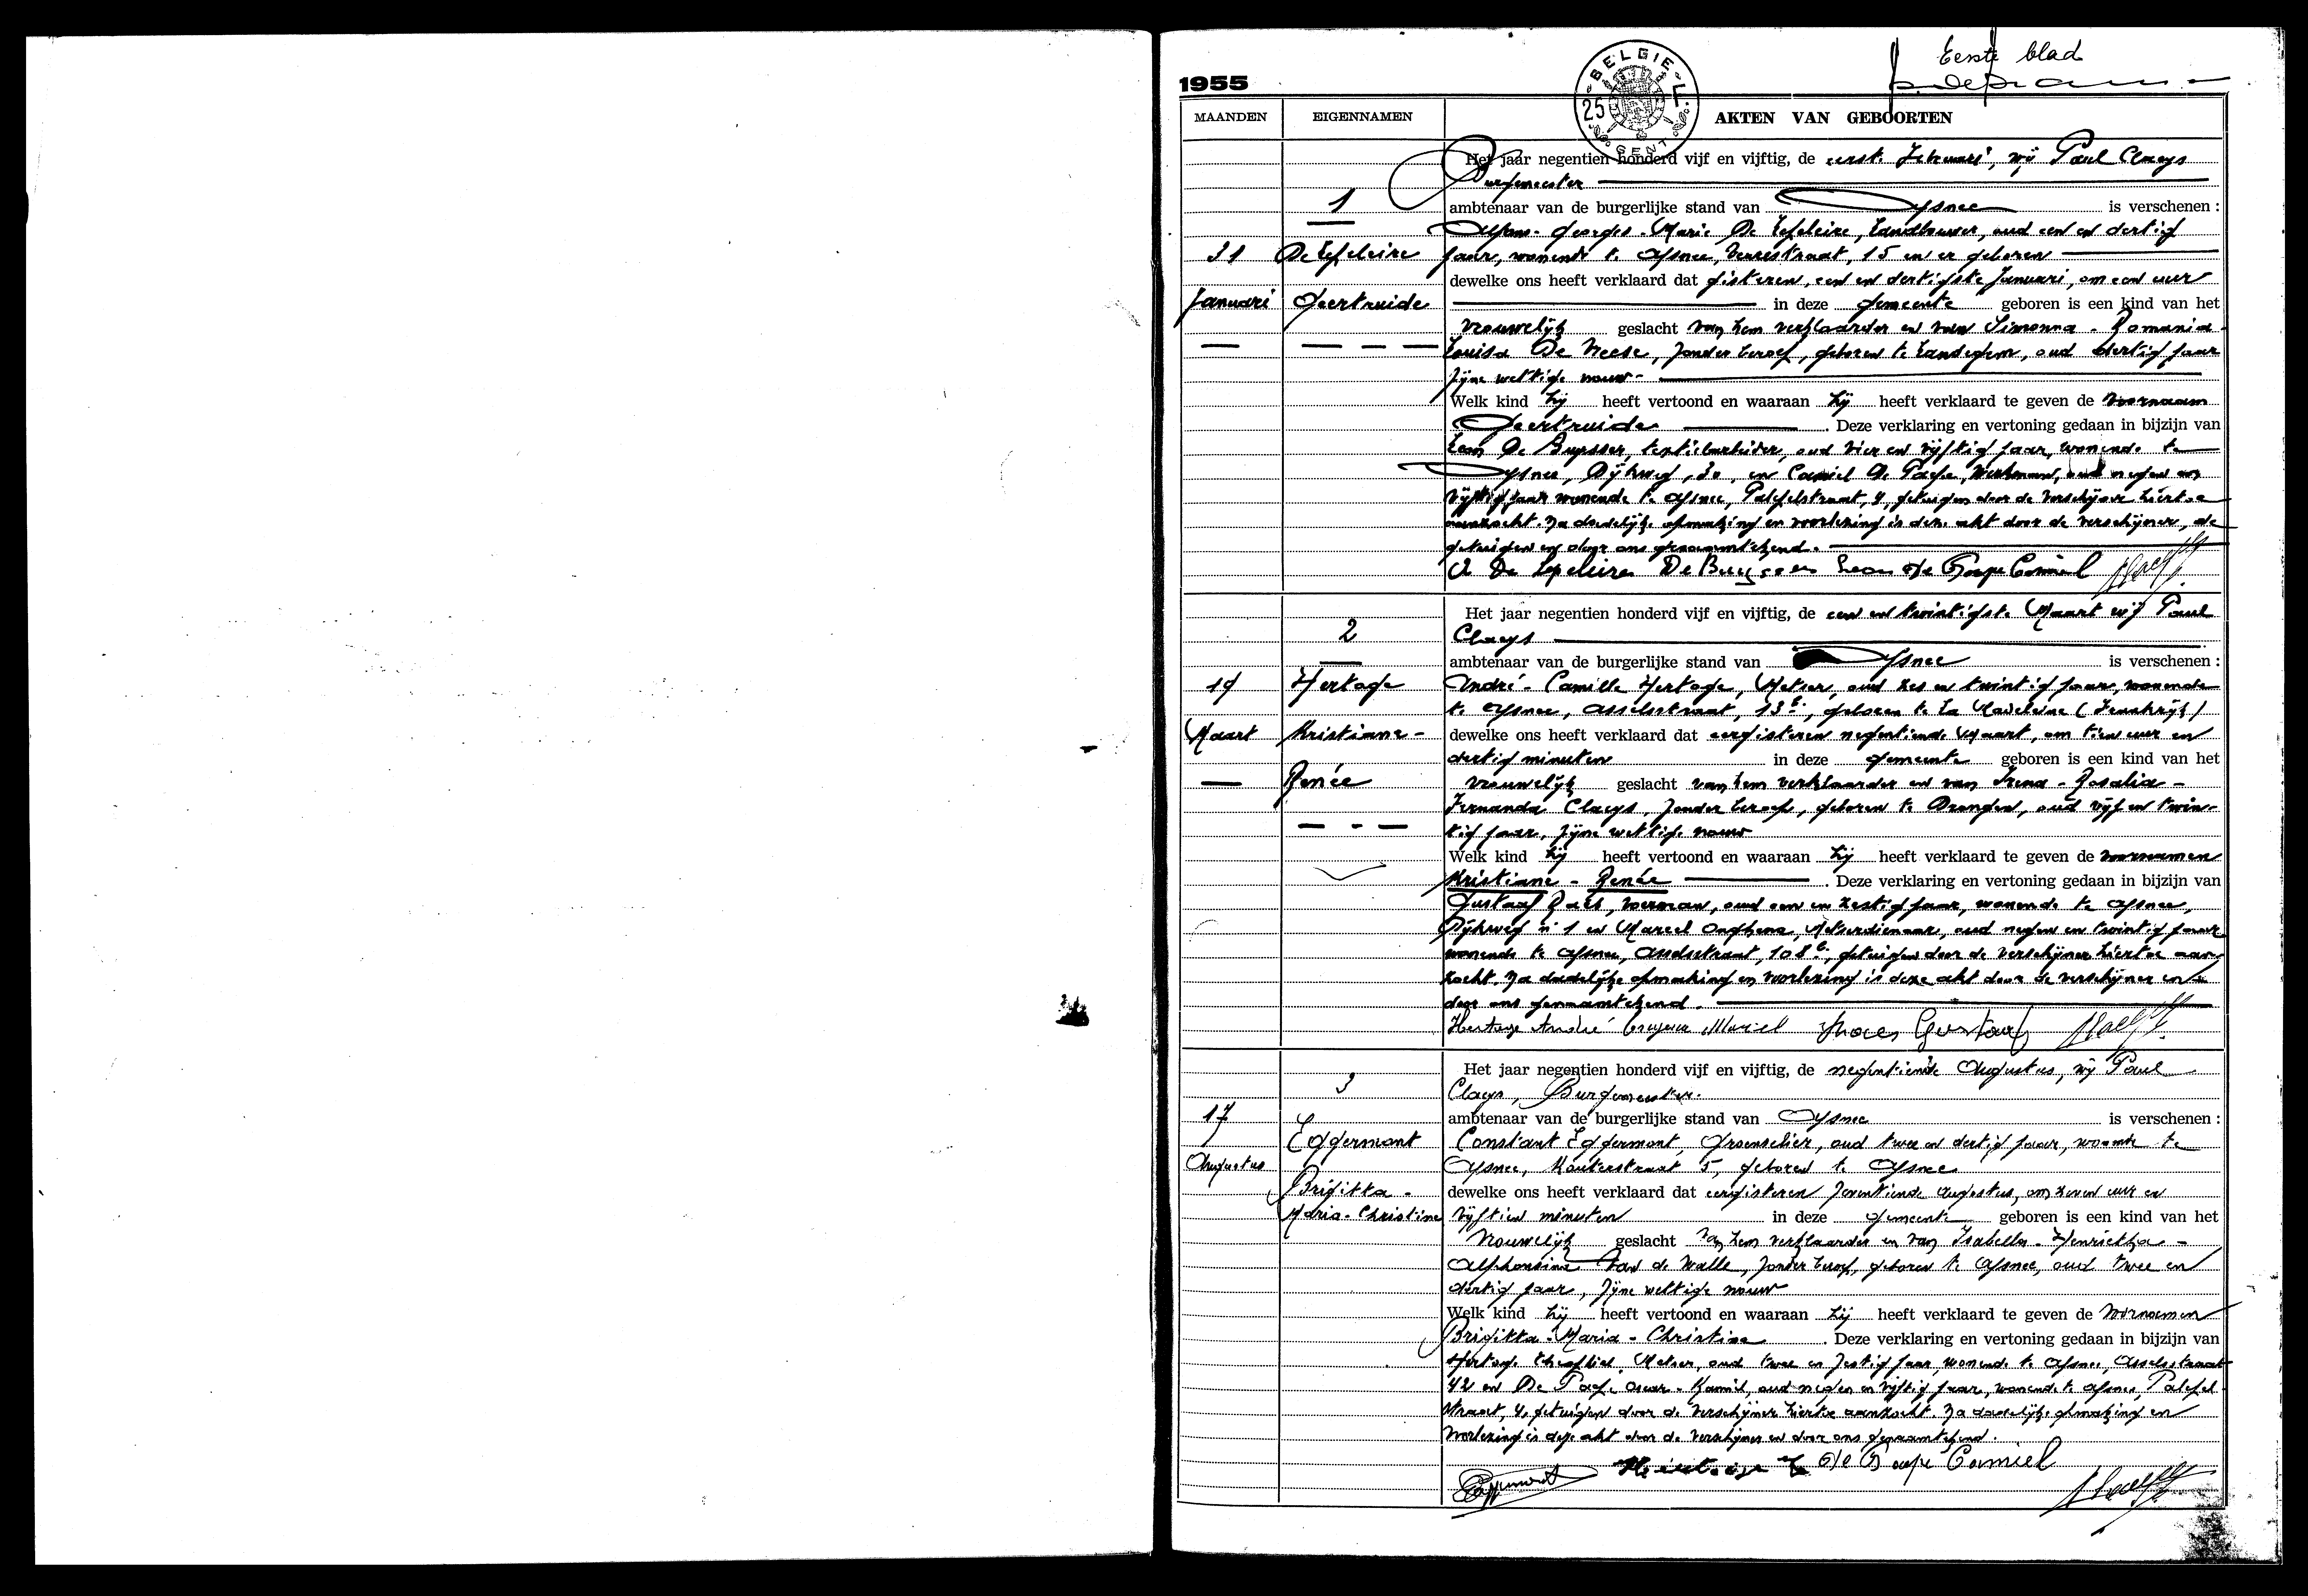 Eerste blad
1955
BELGIE
25
GENT
MAANDEN EIGENNAMEN AKTEN VAN GEBOORTEN
Het jaar negentien honderd vijf en vijftig, de eerste Februari, wij Paul Claeys
Burgemeester
1
ambtenaar van de burgerlijke stand van Afsnee is verschenen :
Alfons - Georges - Marie De Lepeleire, Landbouwer, oud een en dertig
31 De Lepeleire
jaar, wonende te Afsnee, 15 en er geboren
dewelke ons heeft verklaard dat gisteren, een en dertigste Januari, om een uur
Januari Geertruide
in deze gemeente geboren is een kind van het
vrouwelijk geslacht van hem verklaarder en van Simonna - Romania
Louisa De Neese, zonder beroep, geboren te Landegem, oud dertig jaar
zijne wettige vrouw -
Welk kind hij heeft vertoond en waaraan hij heeft verklaard te geven de voornaam
Geertruide . Deze verklaring en vertoning gedaan in bijzijn van
Leon De Buysser, oud vier en vijftig jaar, wonende te
Afsnee, Dijkweg, 30, en Camiel De Paepe, Werkman, oud negen en
vijftig jaar wonende te Afsnee, 4, getuigen door de verschijner hiertoe
aanzocht. Na dadelijke opmaking en voorlezing is deze akt door de verschijner, de
getuigen en door ons genaamtekend.
A De Lepeleire De Buysser Leon De Paepe Camiel
Het jaar negentien honderd vijf en vijftig, de een en twintigste Maart wij Paul
2
Claeys
ambtenaar van de burgerlijke stand van Afsnee is verschenen :
19 Hertoge
André - Camille Hertoge, Metser, oud zes en twintig jaar, wonende
te Afsnee, Asselsstraat, 13 b, geboren te La Madeleine (Frankrijk)
Maart Kristiane -
dewelke ons heeft verklaard dat eergisteren negentiende Maart, om tien uur en
dertig minuten in deze gemeente geboren is een kind van het
Renée
vrouwelijk geslacht van hem verklaarder en van Irena - Rosalia -
Fernanda Claeys, zonder beroep, geboren te Drongen, oud vijf en twin-
tig jaar, zijne wettige vrouw
Welk kind hij heeft vertoond en waaraan hij heeft verklaard te geven de voornamen
Kristiane - Renée . Deze verklaring en vertoning gedaan in bijzijn van
Gustaaf Raes, voerman, oud een en zestig jaar, wonende te Afsnee,
Dijkweg n° 1 en Marcel Onghena, Metserdienaar, oud negen en twintig jaar
wonende te Afsnee, Asselsstraat, 108 b, getuigen door de verschijner hiertoe aan-
zocht. Na dadelijke opmaking en voorlezing is deze akt door de verschijner en
door ons genaamtekend.
Hertoge André Marcel Raes Gustaaf
Het jaar negentien honderd vijf en vijftig, de negentiende Augustus, wij Paul
3
Claeys, Burgemeester.
17
ambtenaar van de burgerlijke stand van Afsnee is verschenen :
Eggermont
Constant Eggermont, Groenselier, oud twee en dertig jaar, woonde te
Augustus
Afsnee, Kouterstraat 5, geboren te Afsnee
Brigitta -
dewelke ons heeft verklaard dat eergisteren zeventiende Augustus, om zeven uur en
Maria - Christine
vijftien minuten in deze gemeente geboren is een kind van het
vrouwelijk geslacht van hem verklaarder en van Isabella - Henriettha -
Alphonsine Van de Walle, zonder beroep, geboren te Afsnee, oud twee en
dertig jaar, zijne wettige vrouw
Welk kind hij heeft vertoond en waaraan hij heeft verklaard te geven de voornamen
Brigitta - Maria - Christine . Deze verklaring en vertoning gedaan in bijzijn van
Hertoge Theofiel, Metser, oud twee en zestig jaar, wonende te Afsnee, Asselsstraat
42 en De Paepe Oscar - Kamiel, oud negen en vijftig jaar, wonende te Afsnee,
straat, 4, getuigen door de verschijner hiertoe aanzocht. Na dadelijke opmaking en
voorlezing is deze akt door de verschijner en door ons genaamtekend.
Eggermont Hertoge De Paepe Camiel